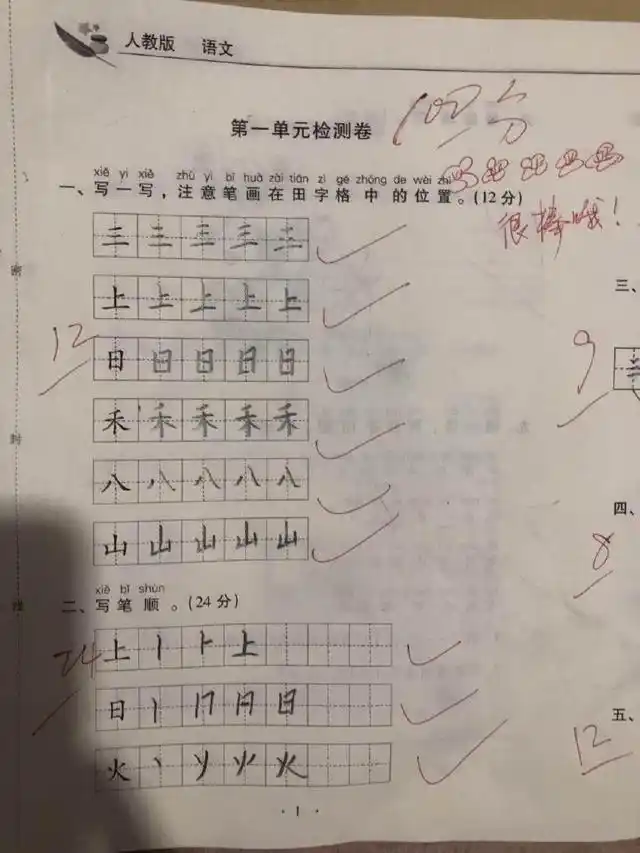 人教版 语文
第一单元检测卷 100分
xiě yi xiě zhù yì bǐ huà zài tián zì gé zhōng de wèi zhi
一、写一写，注意笔画在田字格中的位置。(12分)
很棒哦！
三 三 三 三 三
上 上 上 上 上
12
日 日 日 日 日
禾 禾 禾 禾 禾
八 八 八 八 八
山 山 山 山 山
xiě bǐ shùn
二、写笔顺。(24分)
24
上 丨 ⺊ 上
日 丨 冂 月 日
火 丶 丷 火 火
· 1 ·
三、
9
四、
8
五、
12